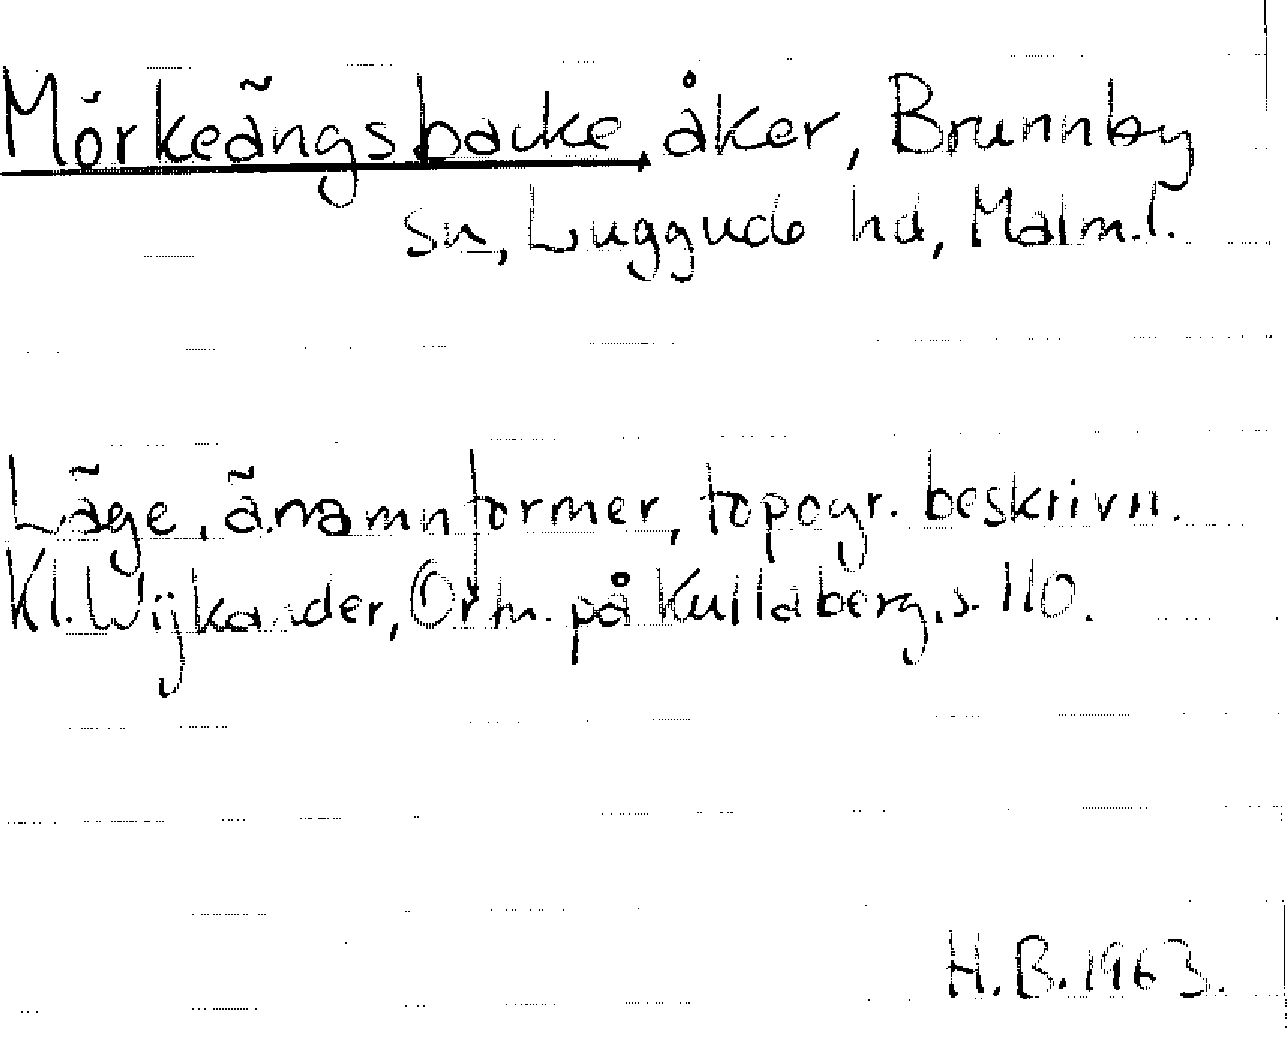 Mörkeängsbacke, åker, Brunnby
sn, Luggude hd, Malm.l.
Läge, ä.namnformer, topogr. beskrivn.
Kl. Wijkander, Ortn. på Kullaberg, s. 110.
H.B. 1963.